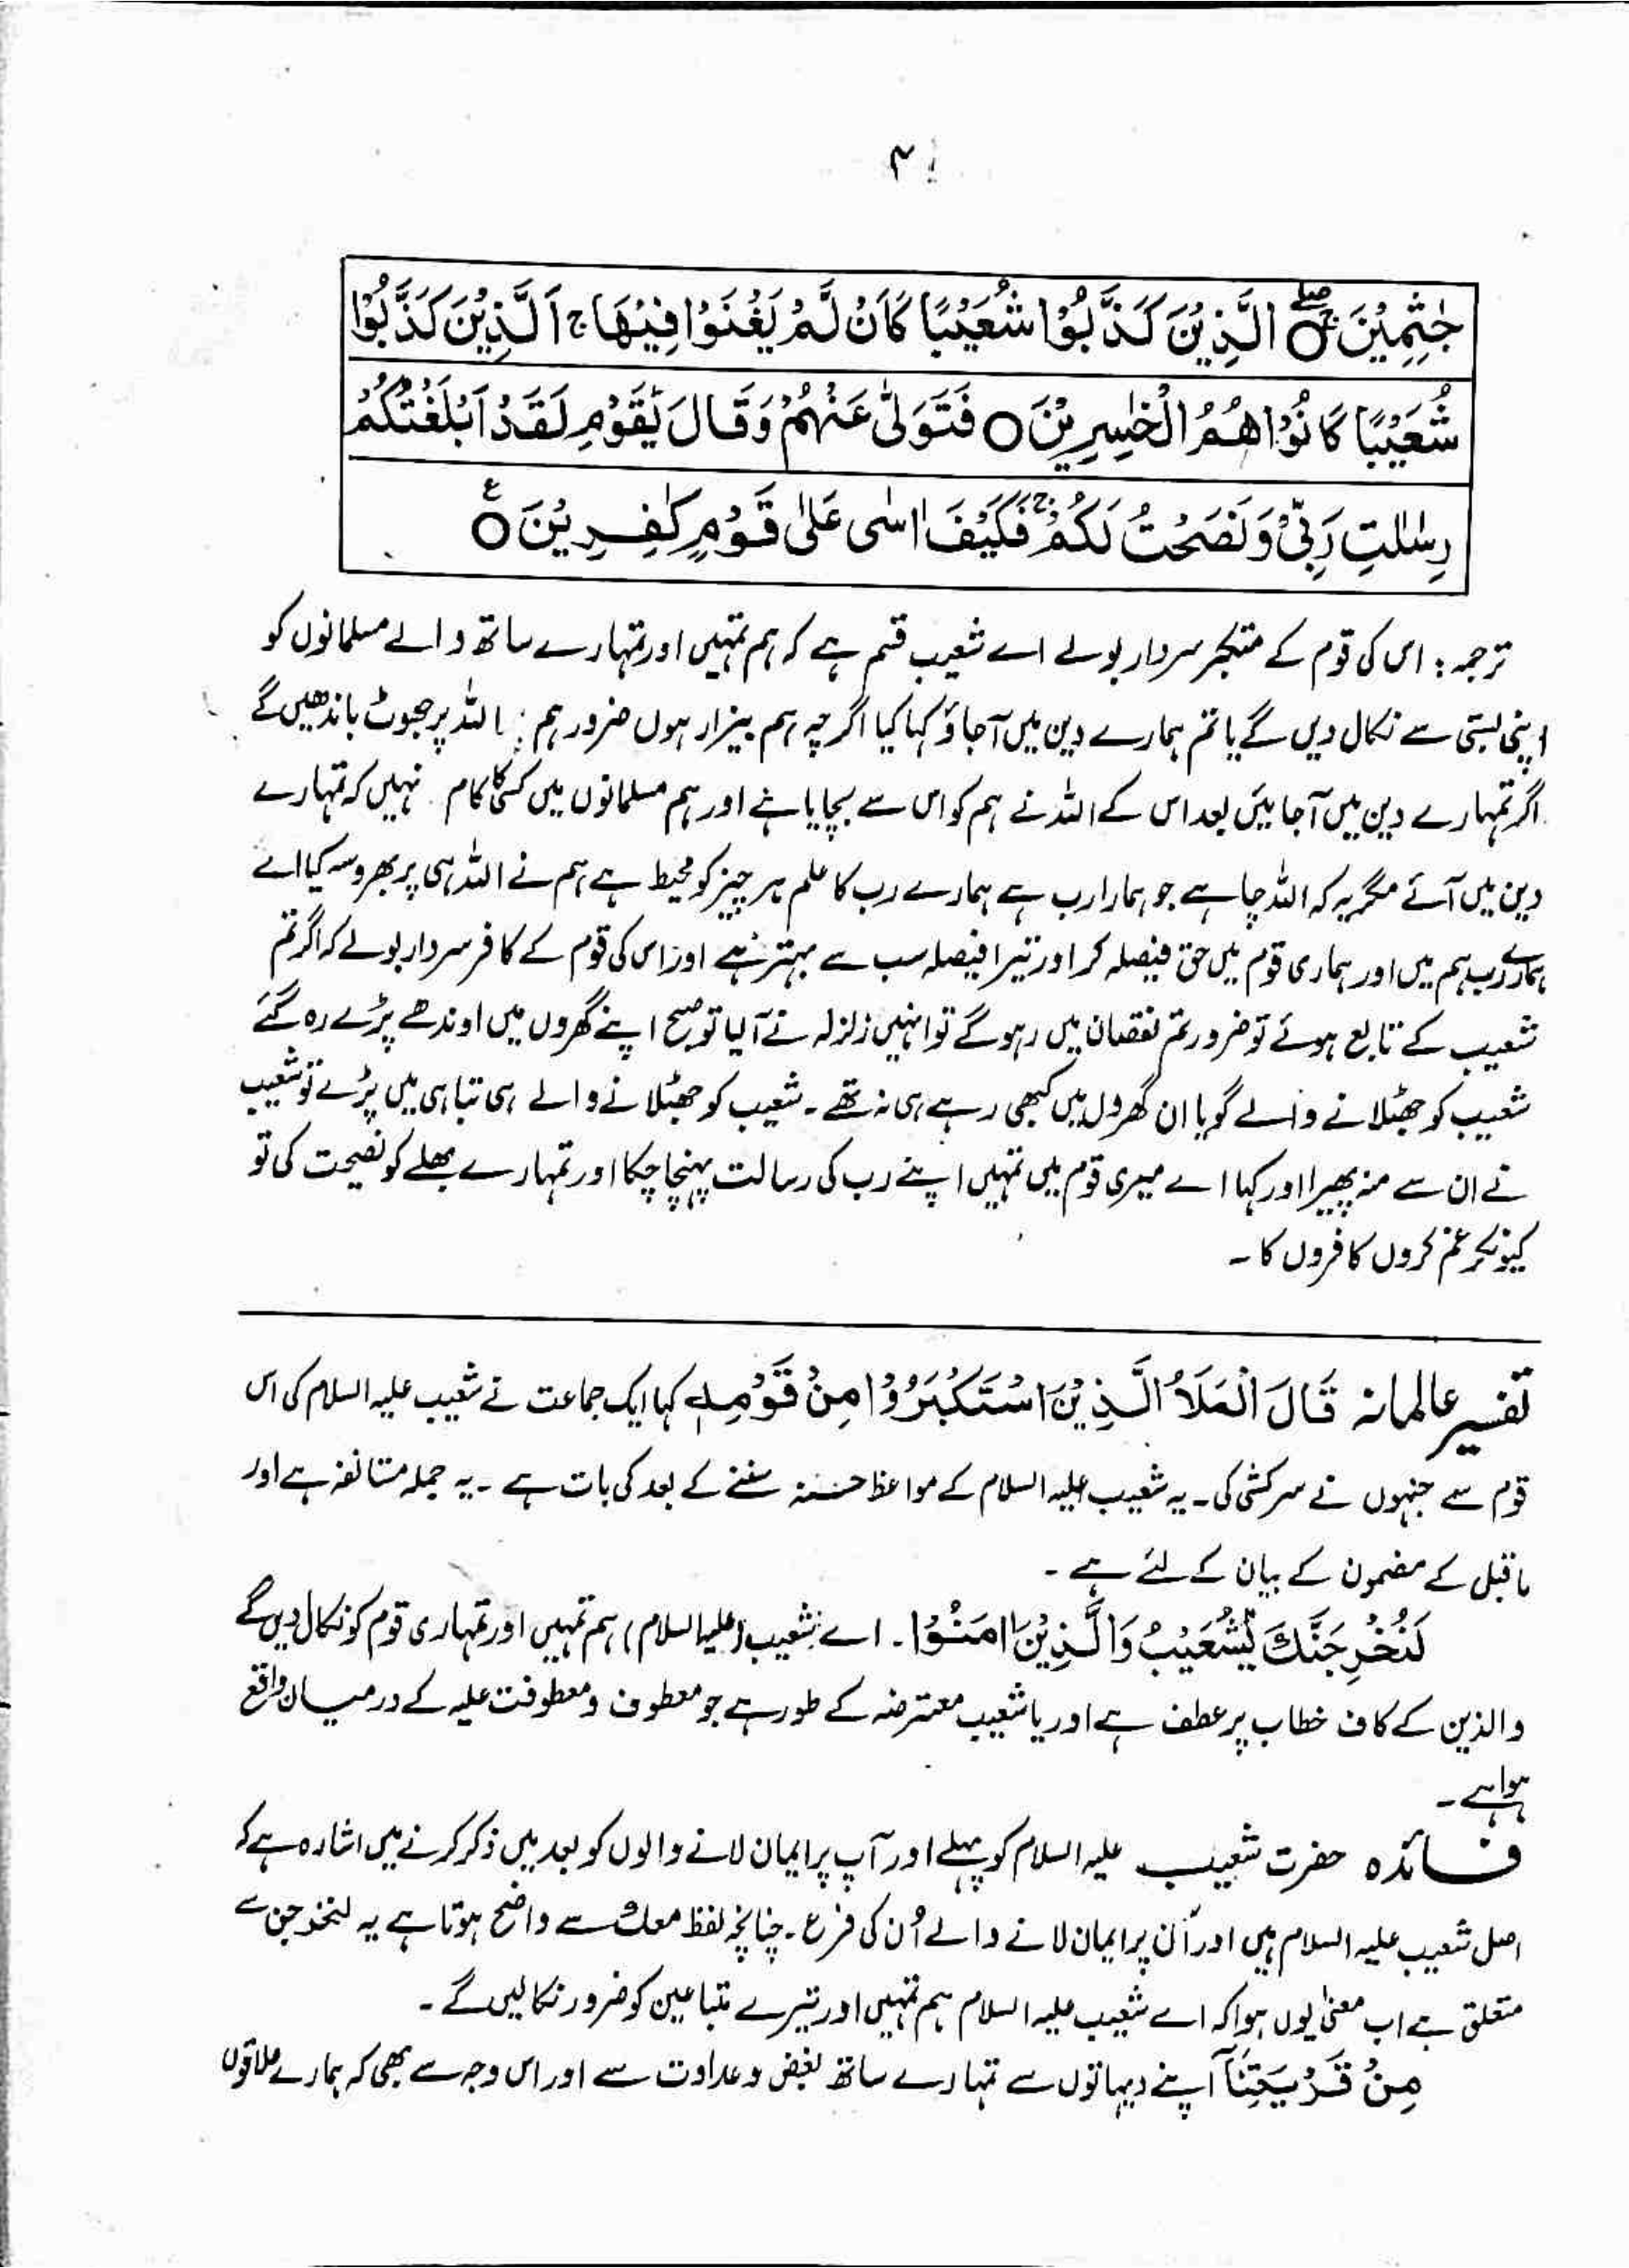 ۴
جٰثِمِيْنَ ○ الَّذِيْنَ كَذَّبُوْا شُعَيْبًا كَاَنْ لَّمْ يَغْنَوْا فِيْهَا ۚ اَلَّذِيْنَ كَذَّبُوْا
شُعَيْبًا كَانُوْا هُمُ الْخٰسِرِيْنَ ○ فَتَوَلّٰى عَنْهُمْ وَقَالَ يٰقَوْمِ لَقَدْ اَبْلَغْتُكُمْ
رِسٰلٰتِ رَبِّيْ وَنَصَحْتُ لَكُمْ ۚ فَكَيْفَ اٰسٰى عَلٰى قَوْمٍ كٰفِرِيْنَ ○ ع
ترجمہ : اس کی قوم کے متکبر سردار بولے اے شعیب قسم ہے کہ ہم تمہیں اور تمہارے ساتھ والے مسلمانوں کو
اپنی بستی سے نکال دیں گے یا تم ہمارے دین میں آجاؤ کہا کیا اگرچہ ہم بیزار ہوں ضرور ہم اللہ پر جھوٹ باندھیں گے
اگر تمہارے دین میں آجائیں بعد اس کے اللہ نے ہم کو اس سے بچایا ہے اور ہم مسلمانوں میں کسی کا کام نہیں کہ تمہارے
دین میں آئے مگر یہ کہ اللہ چاہے جو ہمارا رب ہے ہمارے رب کا علم ہر چیز کو محیط ہے ہم نے اللہ ہی پر بھروسہ کیا اے
ہمارے رب ہم میں اور ہماری قوم میں حق فیصلہ کر اور تیرا فیصلہ سب سے بہتر ہے اور اس کی قوم کے کافر سردار بولے کہ اگر تم
شعیب کے تابع ہوئے تو ضرور تم نقصان میں رہو گے تو انہیں زلزلہ نے آلیا تو صبح اپنے گھروں میں اوندھے پڑے رہ گئے
شعیب کو جھٹلانے والے گویا ان گھروں میں کبھی رہے ہی نہ تھے ۔ شعیب کو جھٹلانے والے ہی تباہی میں پڑے تو شعیب
نے ان سے منہ پھیرا اور کہا اے میری قوم میں تمہیں اپنے رب کی رسالت پہنچا چکا اور تمہارے بھلے کو نصیحت کی تو
کیونکر غم کروں کافروں کا ۔
تفسیر عالمانہ قَالَ الْمَلَاُ الَّذِيْنَ اسْتَكْبَرُوْا مِنْ قَوْمِهٖ کہا ایک جماعت نے شعیب علیہ السلام کی اس
قوم سے جنہوں نے سرکشی کی ۔ یہ شعیب علیہ السلام کے مواعظ حسنہ سننے کے بعد کی بات ہے ۔ یہ جملہ مستانفہ ہے اور
ماقبل کے مضمون کے بیان کے لئے ہے ۔
لَنُخْرِجَنَّكَ يٰشُعَيْبُ وَالَّذِيْنَ اٰمَنُوْا ۔ اے شعیب (علیہ السلام) ہم تمہیں اور تمہاری قوم کو نکال دیں گے
والذین کے کاف خطاب پر عطف ہے اور یا شعیب معترضہ کے طور ہے جو معطوف و معطوف علیہ کے درمیان واقع
ہوا ہے ۔
فائدہ حضرت شعیب علیہ السلام کو پہلے اور آپ پر ایمان لانے والوں کو بعد میں ذکر کرنے میں اشارہ ہے کہ
اصل شعیب علیہ السلام ہیں اور اُن پر ایمان لانے والے اُن کی فرع ۔ چنانچہ لفظ معک سے واضح ہوتا ہے یہ لنخرجن سے
متعلق ہے اب معنیٰ یوں ہوا کہ اے شعیب علیہ السلام ہم تمہیں اور تیرے متباعین کو ضرور نکالیں گے ۔
مِنْ قَرْيَتِنَآ اپنے دیہاتوں سے تمہارے ساتھ بغض و عداوت سے اور اس وجہ سے بھی کہ ہمارے علاقوں